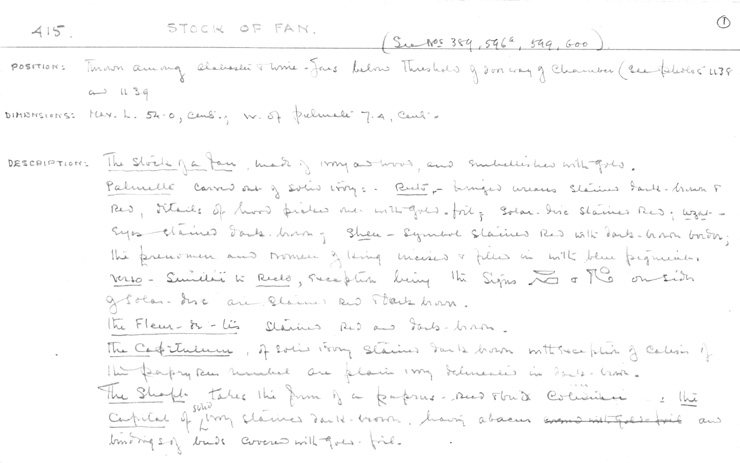 ①
415. STOCK OF FAN.
(See Nos 389, 596a, 599, 600)
POSITION: Thrown among alabaster & wine-Jars below Threshold of doorway of Chamber (See photos 1138
and 1139
DIMENSIONS: Max. L. 54.0, cents.; W. of palmate 7.4, cents.
DESCRIPTION: The Stock of a Fan, made of ivory and wood, and embellished with gold.
Palmette carved out of solid ivory: Recto, - winged uraeus stained dark-brown &
Red, details of hood picked out with gold-foil; Solar-disc stained Red; uzat-
eyes stained dark-brown; Shen-Symbol stained Red with dark-brown border;
the prenomen and nomen of King incised & filled in with blue pigment.
Verso - Similar to Recto, exception being the signs & on side
of Solar-disc are stained red & dark brown.
The Fleur-de-lis stained Red and dark-brown.
The Capitulum, of solid ivory stained dark brown with exception of calices of
the papyrus umbel are plain ivory delineated in dark-brown.
The Shaft takes the form of a papyrus-reed & bud Column: the
Capital of solid ivory stained dark-brown, having abacus covered with gold-foil and
bindings of buds covered with gold-foil.